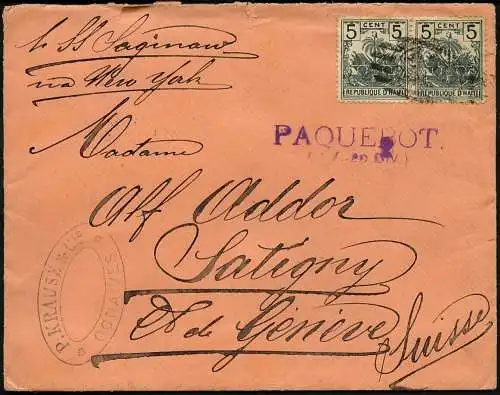 5 CENT 5 5 CENT 5
REPUBLIQUE D'HAITI REPUBLIQUE D'HAITI
SS Saginaw
via New York
PAQUEBOT.
Madame
Alf Addor
Satigny
de Genève
Suisse
P. KRAUSZ